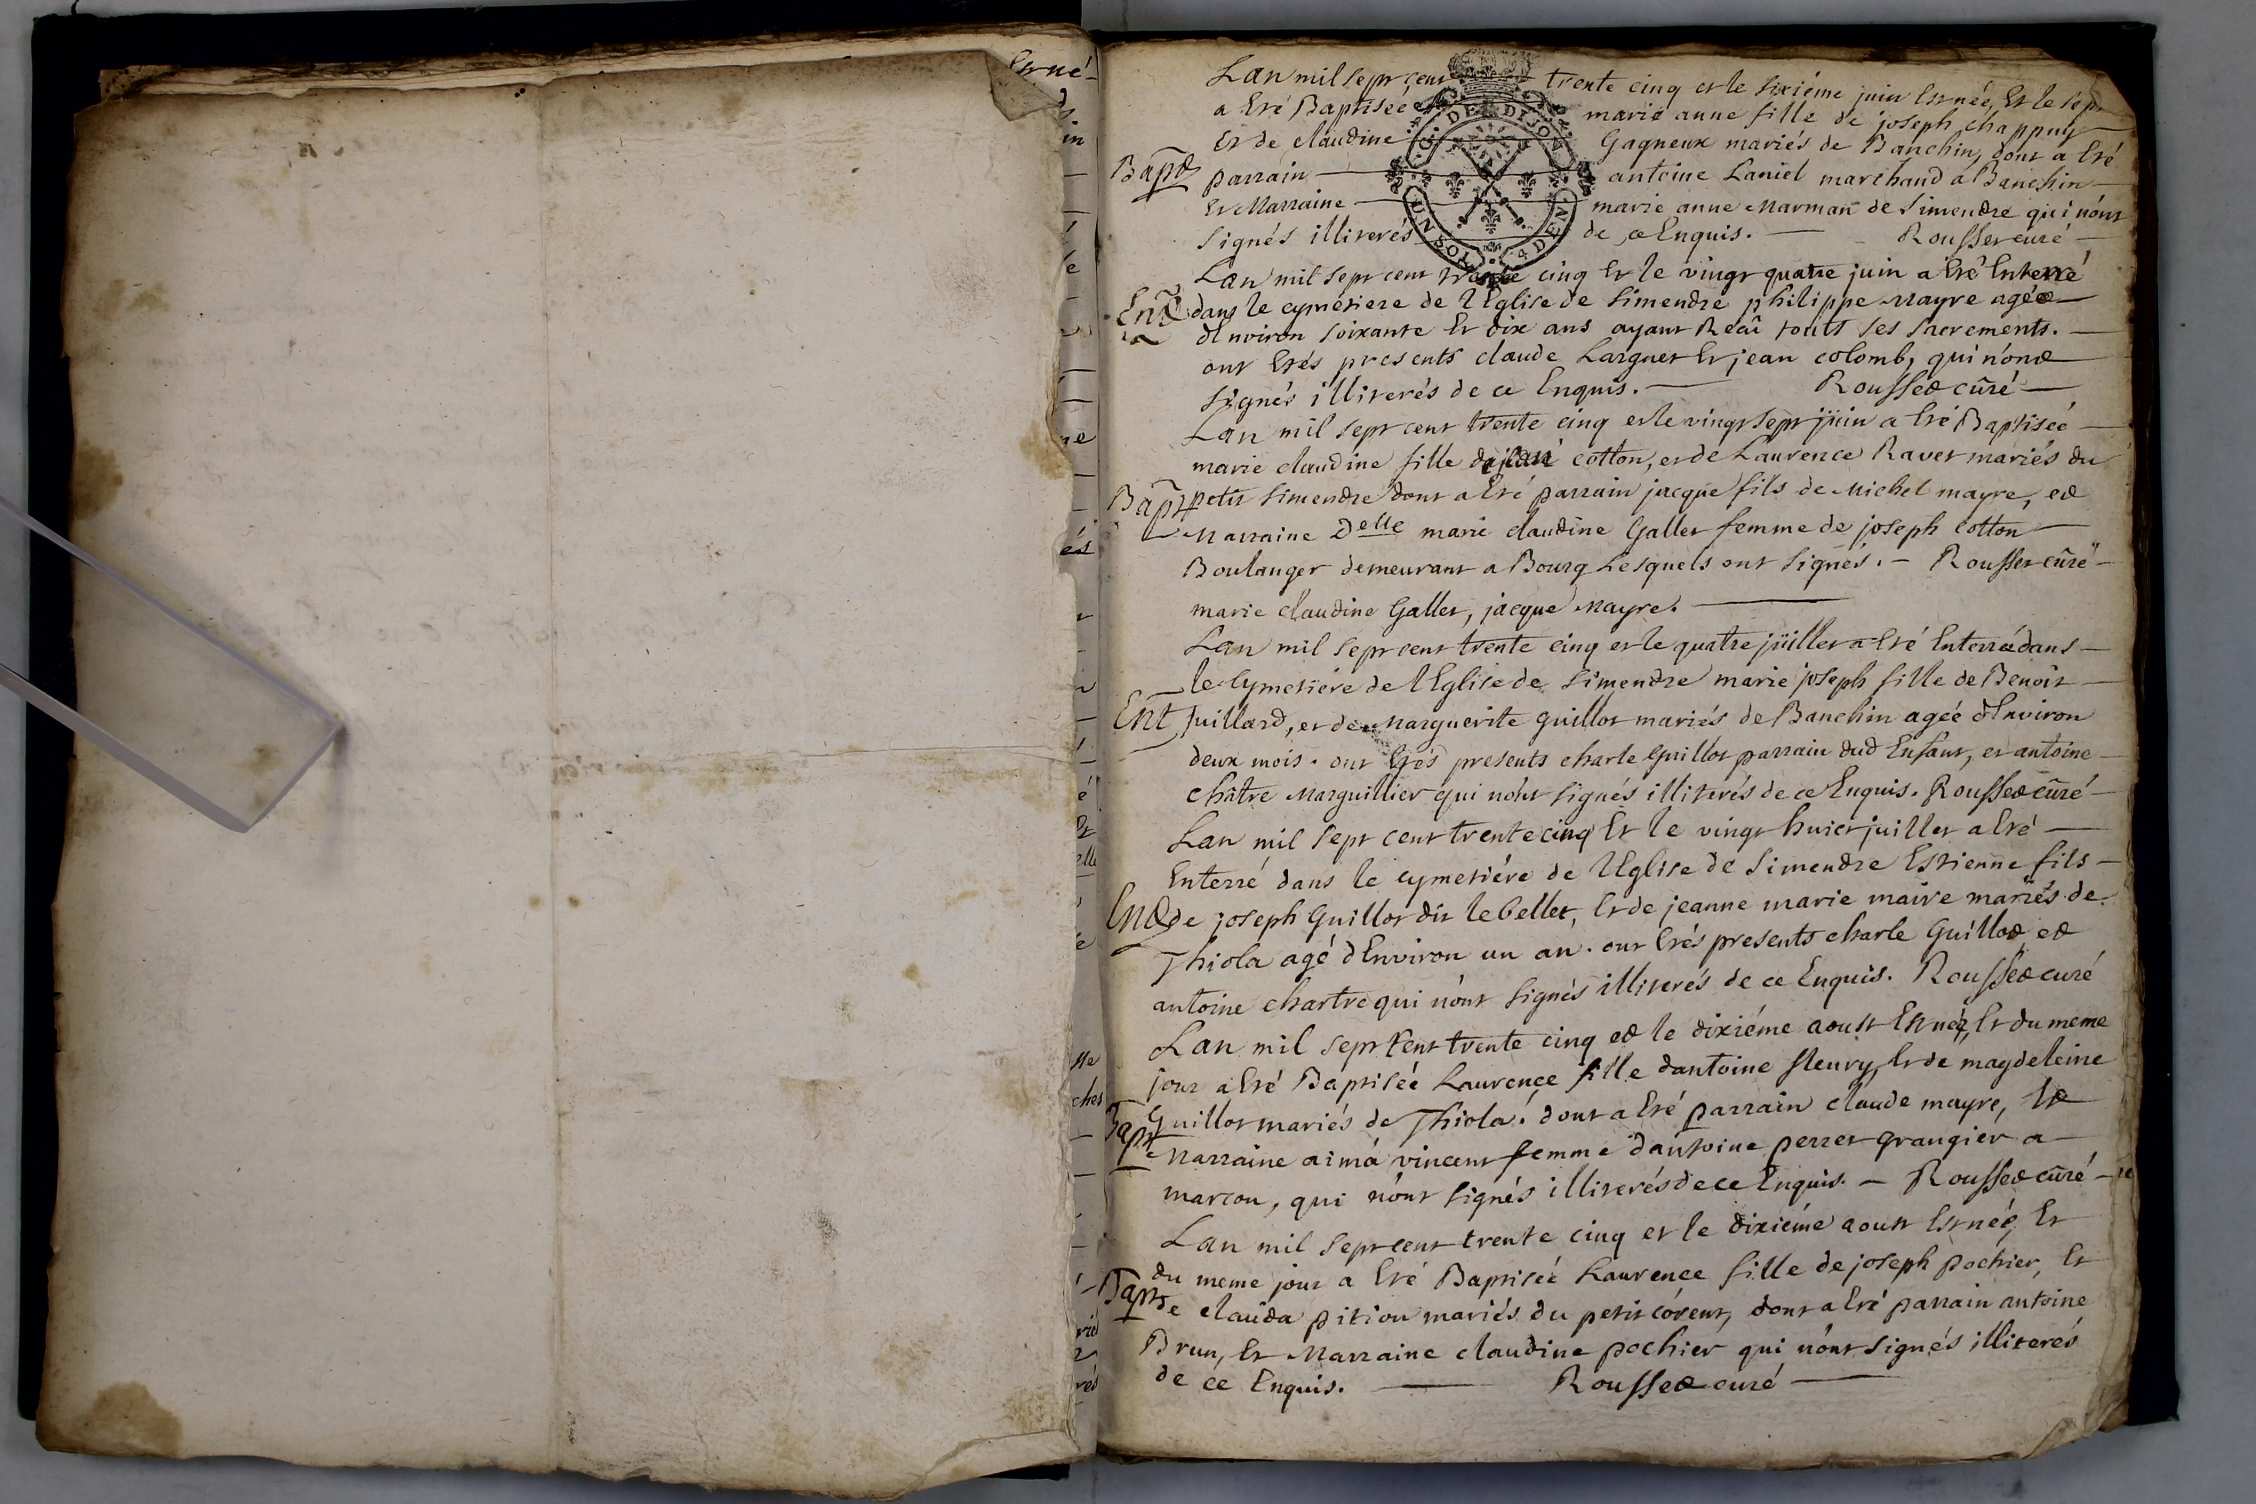 Lan mil sept cent trente cinq et le sixiéme juin Est née, Et le sept
a Eté Baptiseé marie anne fille de joseph chappuy
Et de claudine Gagneux mariés de Banchin, dont a Eté
Bapt parrain antoine Laniel marchand a Banchin
Et Marraine marie anne Marman de Simendre qui n'ont
signés illiterés de ce Enquis. Rousset curé
G. DE DIJON
UN SOL 4 DEN.
Lan mil sept cent trente cinq Et le vingt quatre juin a Eté Enterré
Ent dans le cymétiere de l'Eglise de Simendre philippe Mayre agée
dEnviron soixante Et dix ans ayant Recû touts ses sacrements.
ont Etés presents claude Larguet Et jean colomb, qui n'ont
signés illiterés de ce Enquis. Rousset cûré
Lan mil sept cent trente cinq et le vingt sept juin a Eté Baptiseé
marie claudine fille de jean cotton, et de Laurence Ravet mariés du
Bapt petit Simendre dont a Eté parrain jacque fils de Michel mayre, et
Marraine Delle marie claudine Gallet femme de joseph cotton
Boulanger demeurant a Bourg Lesquels ont signés. - Rousset cûré
marie claudine Gallet, jacque Mayre.
Lan mil sept cent trente cinq et le quatre jüillet a Eté Enterrée dans
le Cymetiére de lEglise de Simendre marie joseph fille de Benoît
Ent juillard, et de Marguerite guillot mariés de Banchin agée dEnviron
deux mois. ont Etés presents charle Guillot parrain dud Enfant, et antoine
châtre Marguillier qui n'ont signés illiterés de ce Enquis. Rousset cûré
Lan mil sept cent trente cinq Et le vingt huict juillet a Eté
Enterré dans le cymetiére de l'Eglise de Simendre Estienne fils
Ent de joseph Guillot dit le bellet, Et de jeanne marie maire mariés de
Thiola agé dEnviron un an. ont Etés presents charle Guillot et
antoine chartre qui n'ont signés illiterés de ce Enquis. Rousset curé
Lan mil sept Cent trente cinq et le dixiéme aoust Est née, Et du meme
jour a Eté Baptiseé Laurence fille dantoine fleury, Et de magdeleine
Bapt Guillot mariés de Thiola. dont a Eté parrain claude mayre, Et
Marraine aimá vincent femme d'antoine perret grangier a
marcou, qui n'ont signés illiterés de ce Enquis. - Rousset cûré
Lan mil sept cent trente cinq et le dixiéme aoust Est née, Et
du meme jour a Eté Baptiseé Laurence fille de joseph pochier, Et
Bapt de claûda pition mariés du petit córent, dont a Eté parrain antoine
Brun, Et Marraine claudine pochier qui n'ont signés illiterés
de ce Enquis. Rousset curé